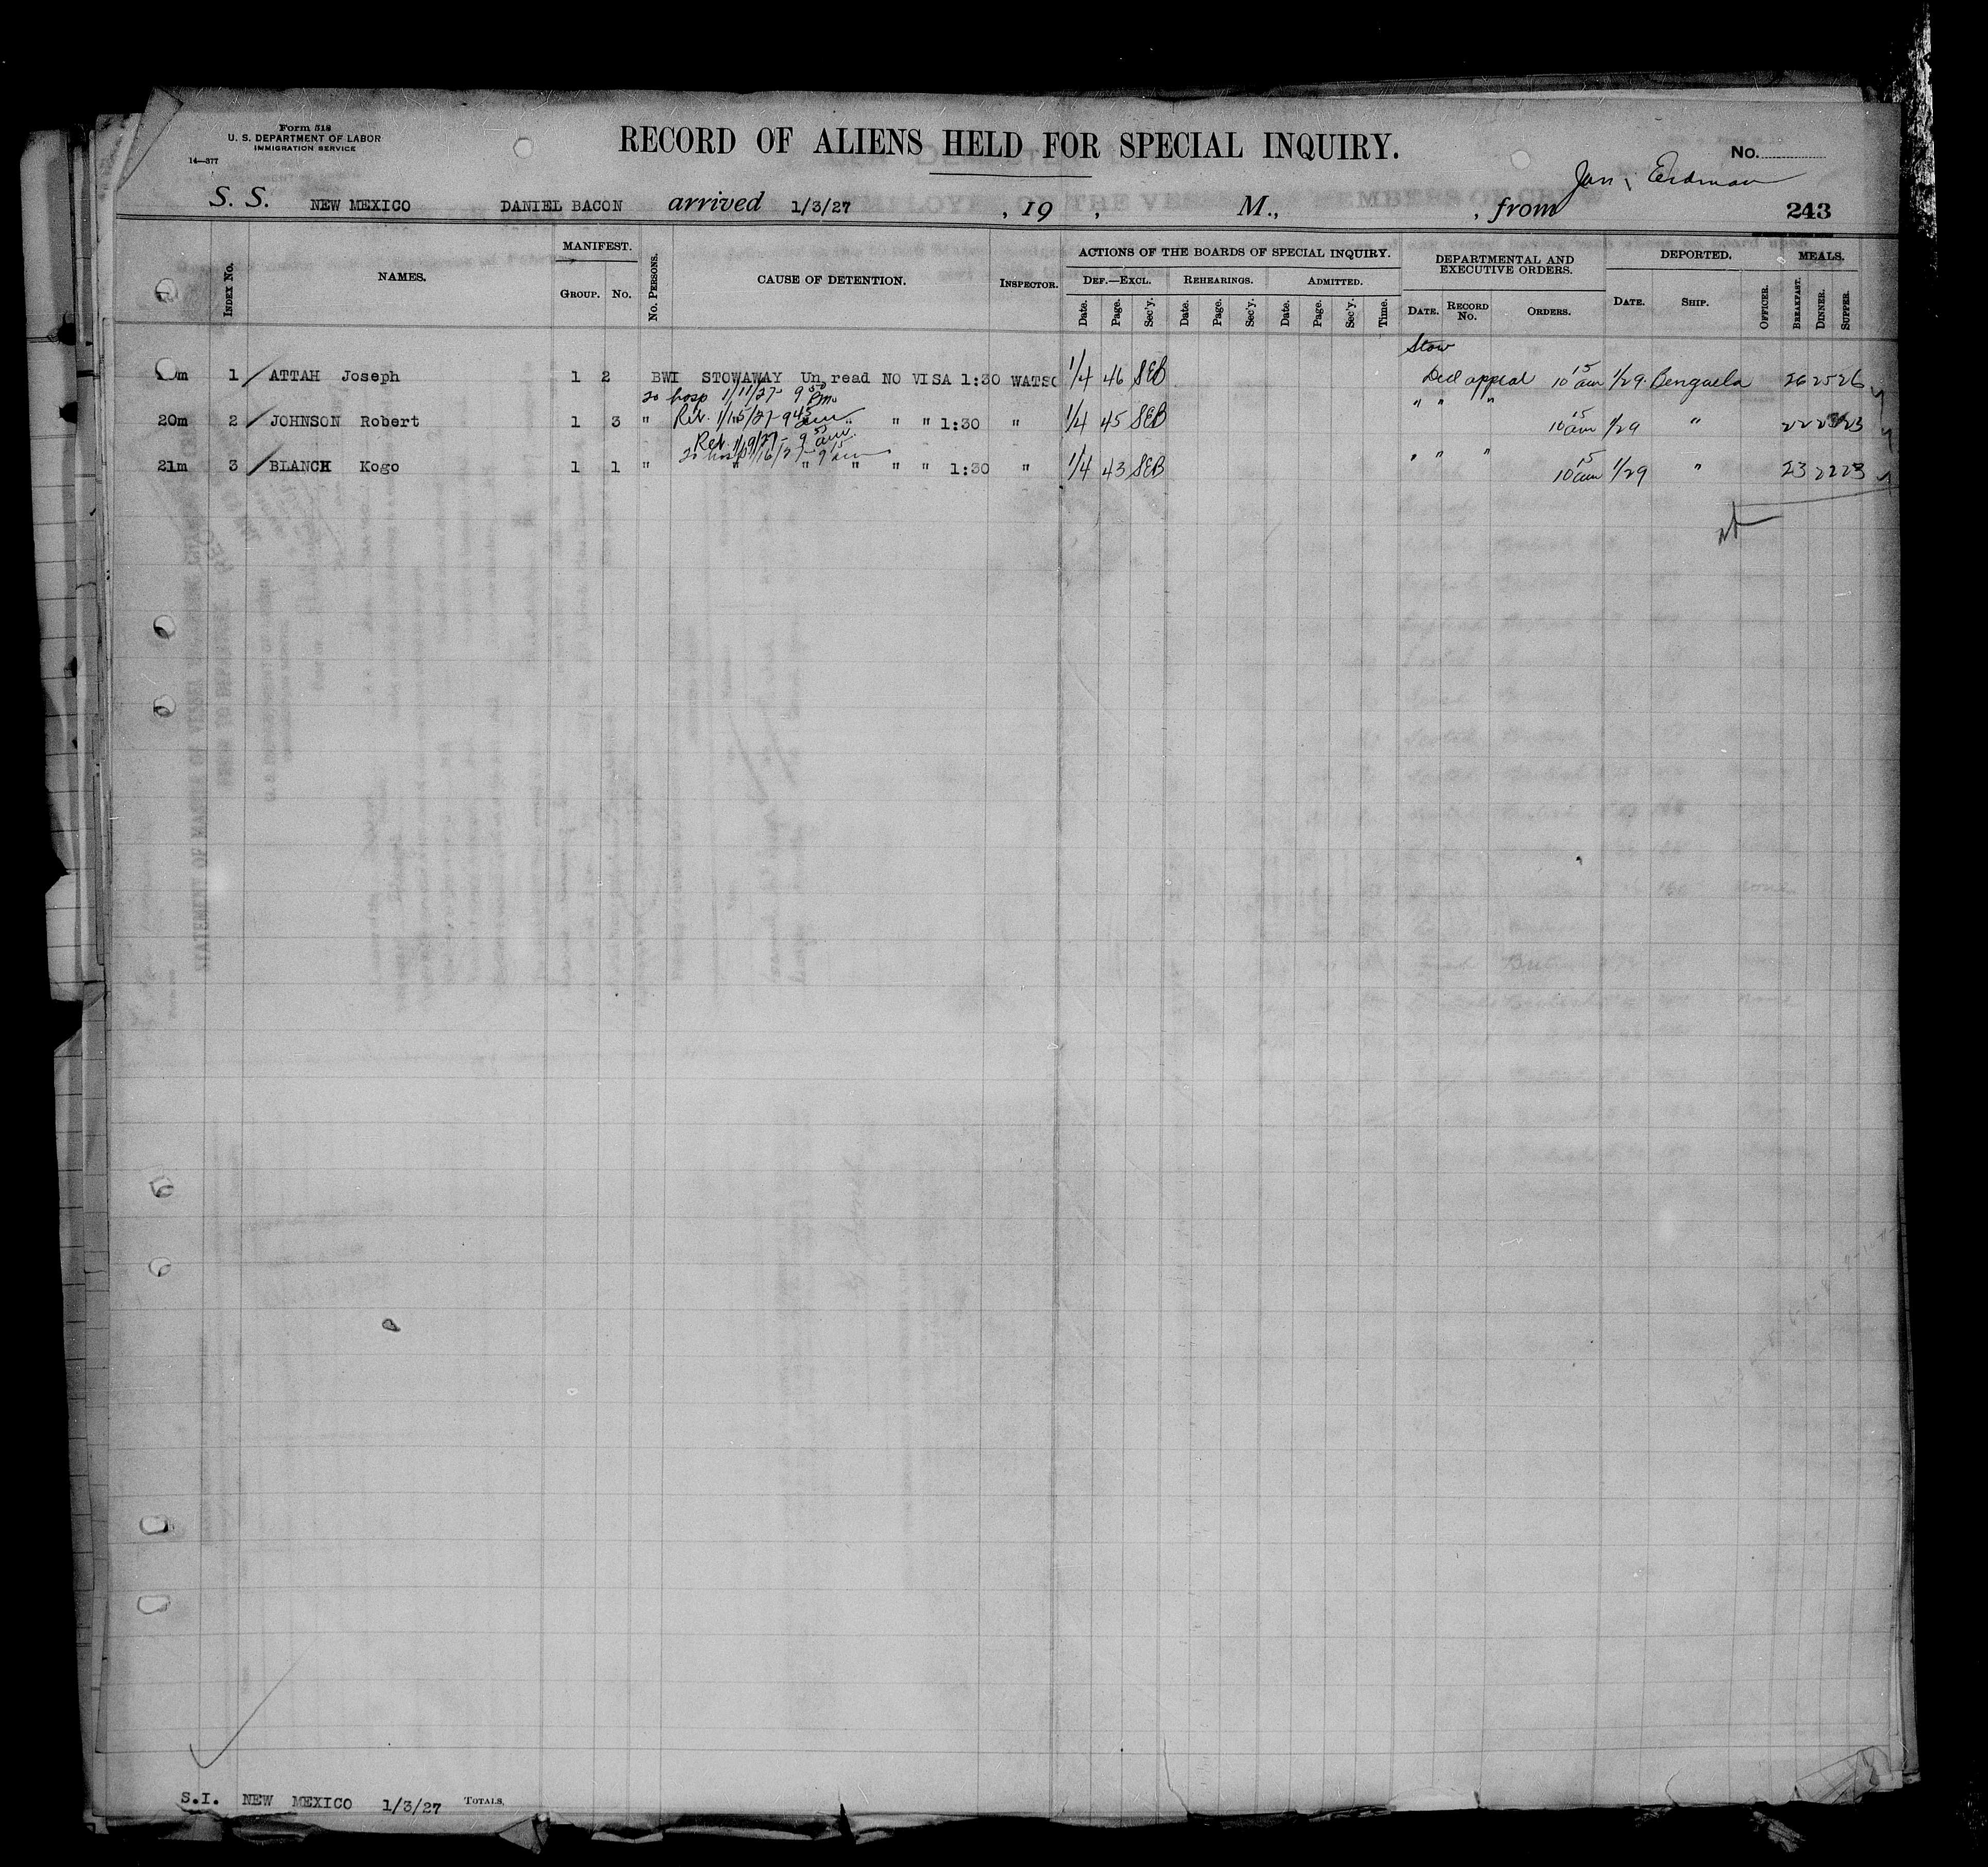 Form 518
U. S. DEPARTMENT OF LABOR
IMMIGRATION SERVICE
14—377
RECORD OF ALIENS HELD FOR SPECIAL INQUIRY.
No.
S. S. NEW MEXICO DANIEL BACON arrived 1/3/27 , 19 , M., , from
243
INDEX No. NAMES. MANIFEST. GROUP. No. No. PERSONS. CAUSE OF DETENTION. INSPECTOR. ACTIONS OF THE BOARDS OF SPECIAL INQUIRY. DEF.—EXCL. Date. Page. Sec'y. REHEARINGS. Date. Page. Sec'y. ADMITTED. Date. Page. Sec'y. Time. DEPARTMENTAL AND EXECUTIVE ORDERS. DATE. RECORD No. ORDERS. DEPORTED. DATE. SHIP. OFFICER. MEALS. BREAKFAST. DINNER. SUPPER.
Stow
m 1 ATTAH Joseph 1 2 BWI STOWAWAY Un read NO VISA 1:30 WATSO 1/4 46 SEB Decl appeal 10 15 am 1/29 Benguela 26 25 26
To hosp 1/11/27 9 50 Pm
20m 2 JOHNSON Robert 1 3 " Ret. 1/15/27 9 45 am " " " 1:30 " 1/4 45 SEB " " " 10 15 am 1/29 " 22 23 23
Ret. 1/19/27 - 9 55 am
To hosp 1/16/27 - 9 15 am
21m 3 BLANCH Kogo 1 1 " " " " " " 1:30 " 1/4 43 SEB " " " 10 15 am 1/29 " 23 22 23
S.I. NEW MEXICO 1/3/27 TOTALS.